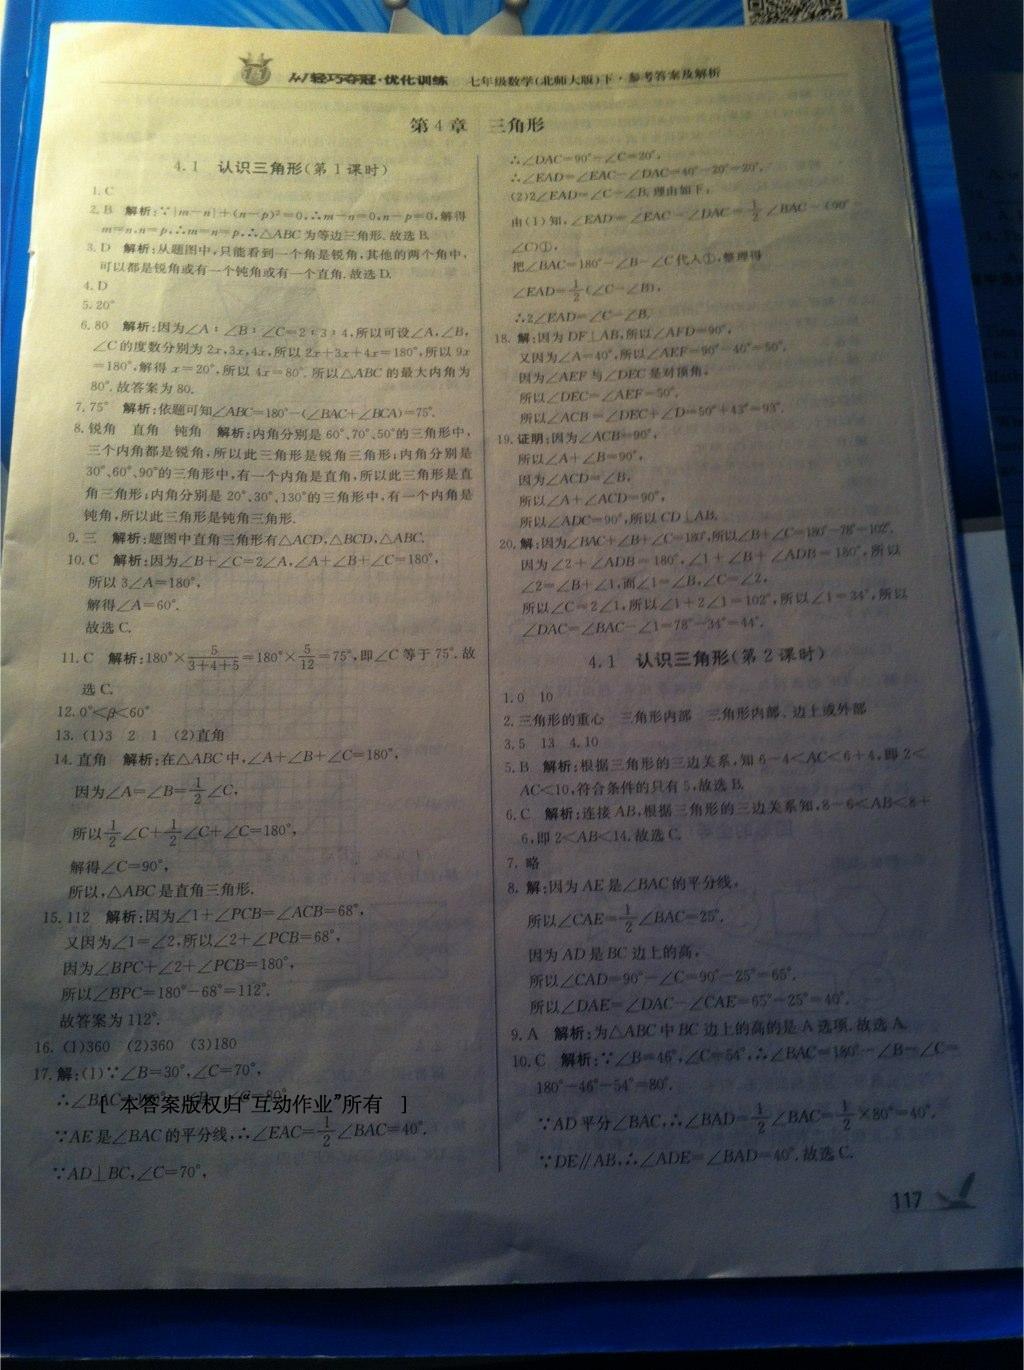 1+1轻巧夺冠·优化训练 七年级数学(北师大版)下·参考答案及解析
第4章 三角形
4.1 认识三角形(第1课时)
1. C
2. B 解析:∵|m-n|+(n-p)²=0,∴m-n=0,n-p=0,解得
m=n,n=p,∴m=n=p,∴△ABC为等边三角形.故选B.
3. D 解析:从题图中,只能看到一个角是锐角,其他的两个角中,
可以都是锐角或有一个钝角或有一个直角.故选D.
4. D
5. 20°
6. 80 解析:因为∠A:∠B:∠C=2:3:4,所以可设∠A,∠B,
∠C的度数分别为2x,3x,4x,所以2x+3x+4x=180°,所以9x
=180°,解得x=20°,所以4x=80°.所以△ABC的最大内角为
80°.故答案为80.
7. 75° 解析:依题可知∠ABC=180°-(∠BAC+∠BCA)=75°.
8. 锐角 直角 钝角 解析:内角分别是60°、70°、50°的三角形中,
三个内角都是锐角,所以此三角形是锐角三角形;内角分别是
30°、60°、90°的三角形中,有一个内角是直角,所以此三角形是直
角三角形;内角分别是20°、30°、130°的三角形中,有一个内角是
钝角,所以此三角形是钝角三角形.
9. 三 解析:题图中直角三角形有△ACD,△BCD,△ABC.
10. C 解析:因为∠B+∠C=2∠A,∠A+∠B+∠C=180°,
所以3∠A=180°,
解得∠A=60°.
故选C.
11. C 解析:180°×5/(3+4+5)=180°×5/12=75°,即∠C等于75°.故
选C.
12. 0°<β<60°
13. (1)3 2 1 (2)直角
14. 直角 解析:在△ABC中,∠A+∠B+∠C=180°,
因为∠A=∠B=1/2∠C,
所以1/2∠C+1/2∠C+∠C=180°,
解得∠C=90°,
所以,△ABC是直角三角形.
15. 112 解析:因为∠1+∠PCB=∠ACB=68°,
又因为∠1=∠2,所以∠2+∠PCB=68°,
因为∠BPC+∠2+∠PCB=180°,
所以∠BPC=180°-68°=112°.
故答案为112°.
16. (1)360 (2)360 (3)180
17. 解:(1)∵∠B=30°,∠C=70°,
∴∠BAC=180°-∠B-∠C=80°
[ 本答案版权归"互动作业"所有 ]
∵AE是∠BAC的平分线,∴∠EAC=1/2∠BAC=40°.
∵AD⊥BC,∠C=70°,
∴∠DAC=90°-∠C=20°,
∴∠EAD=∠EAC-∠DAC=40°-20°=20°.
(2)2∠EAD=∠C-∠B.理由如下:
由(1)知,∠EAD=∠EAC-∠DAC=1/2∠BAC-(90°-
∠C)①,
把∠BAC=180°-∠B-∠C代入①,整理得
∠EAD=1/2(∠C-∠B),
∴2∠EAD=∠C-∠B.
18. 解:因为DF⊥AB,所以∠AFD=90°,
又因为∠A=40°,所以∠AEF=90°-40°=50°.
因为∠AEF与∠DEC是对顶角,
所以∠DEC=∠AEF=50°,
所以∠ACB=∠DEC+∠D=50°+43°=93°.
19. 证明:因为∠ACB=90°,
所以∠A+∠B=90°,
因为∠ACD=∠B,
所以∠A+∠ACD=90°,
所以∠ADC=90°,所以CD⊥AB.
20. 解:因为∠BAC+∠B+∠C=180°,所以∠B+∠C=180°-78°=102°.
因为∠2+∠ADB=180°,∠1+∠B+∠ADB=180°,所以
∠2=∠B+∠1,而∠1=∠B,∠C=∠2,
所以∠C=2∠1,所以∠1+2∠1=102°,所以∠1=34°,所以
∠DAC=∠BAC-∠1=78°-34°=44°.
4.1 认识三角形(第2课时)
1. 0 10
2. 三角形的重心 三角形内部 三角形内部、边上或外部
3. 5 13 4. 10
5. B 解析:根据三角形的三边关系,知6-4<AC<6+4,即2<
AC<10,符合条件的只有5,故选B.
6. C 解析:连接AB,根据三角形的三边关系知,8-6<AB<8+
6,即2<AB<14.故选C.
7. 略
8. 解:因为AE是∠BAC的平分线,
所以∠CAE=1/2∠BAC=25°.
因为AD是BC边上的高,
所以∠CAD=90°-∠C=90°-25°=65°.
所以∠DAE=∠DAC-∠CAE=65°-25°=40°.
9. A 解析:为△ABC中BC边上的高的是A选项.故选A.
10. C 解析:∵∠B=46°,∠C=54°,∴∠BAC=180°-∠B-∠C=
180°-46°-54°=80°.
∵AD平分∠BAC,∴∠BAD=1/2∠BAC=1/2×80°=40°.
∵DE∥AB,∴∠ADE=∠BAD=40°.故选C.
117